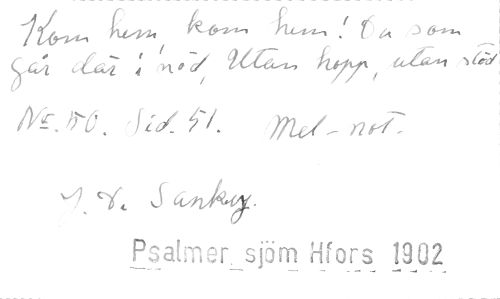 Kom hem, kom hem! Du som
går där i nöd, Utan hopp, utan stöd
No. 50. Sid. 51. Mel-not.
J. D. Sankey.
Psalmer sjöm Hfors 1902